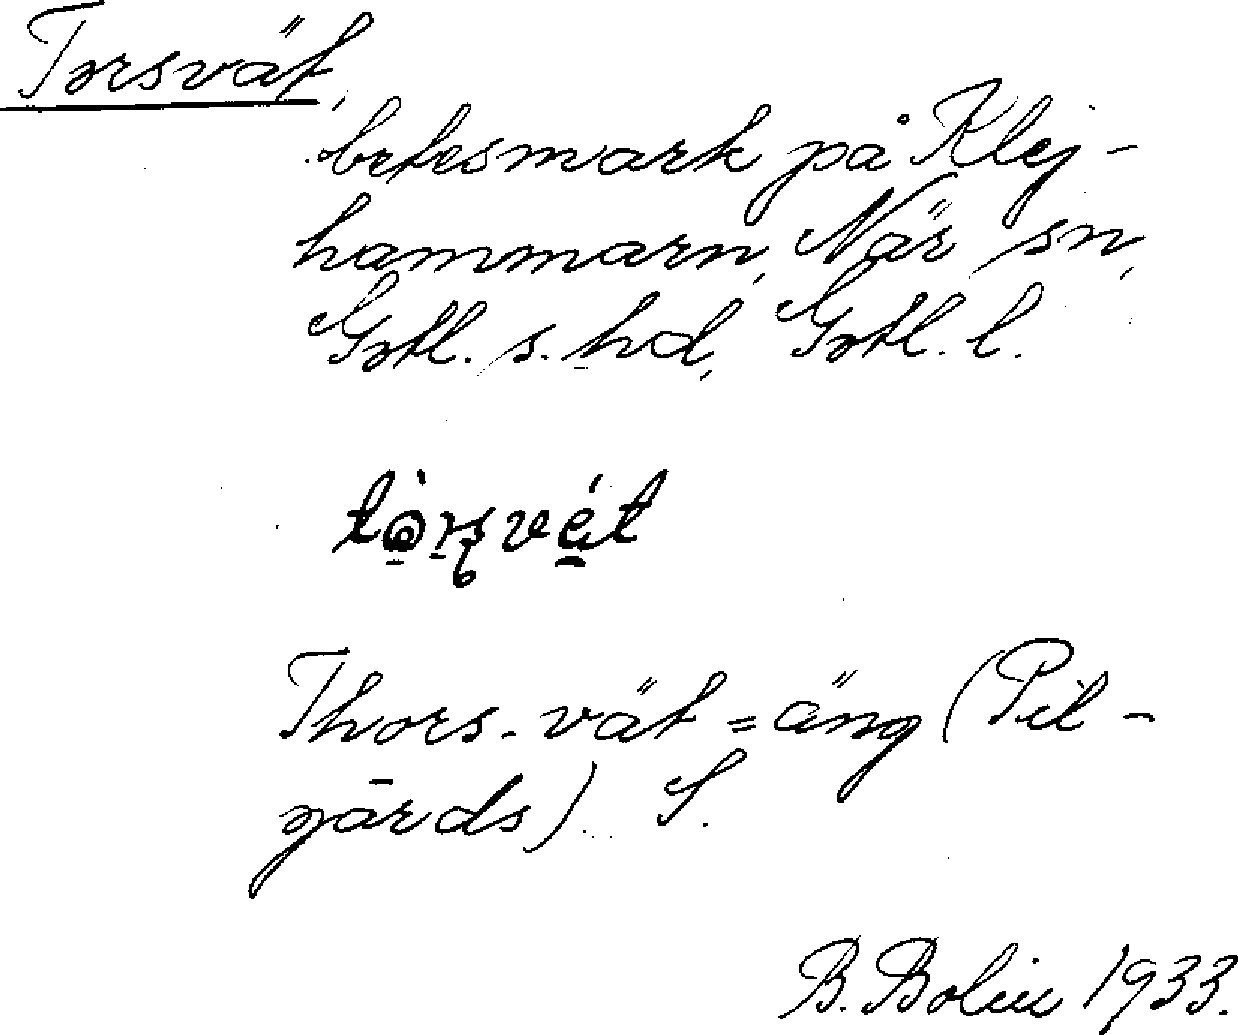 Torsvät,
betesmark på Klej-
hammarn, När sn,
Gotl. s. hd, Gotl. l.
Thors-vät = äng (Pil-
gårds). S.
B. Bolin 1933.